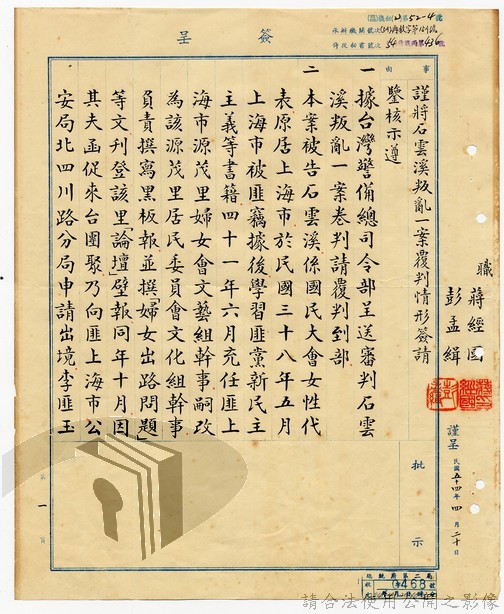 簽呈
事由
謹將石雲溪叛亂一案覆判情形簽請
鑒核示遵
職 蔣經國
彭孟緝
謹呈
民國五十四年四月二十日
批示
一據台灣警備總司令部呈送審判石雲
溪叛亂一案卷判請覆判到部
二本案被告石雲溪係國民大會女性代
表原居上海市於民國三十八年五月
上海市被匪竊據後學習匪黨新民主
主義等書籍四十一年六月充任匪上
海市源茂里婦女會文藝組幹事嗣改
為該源茂里居民委員會文化組幹事
負責撰寫黑板報並撰「婦女出路問題」
等文刊登該里「論壇」壁報同年十月因
其夫函促來台團聚乃向匪上海市公
安局北四川路分局申請出境李匪玉
第一頁
總統府第二局
468
請合法使用公開之影像